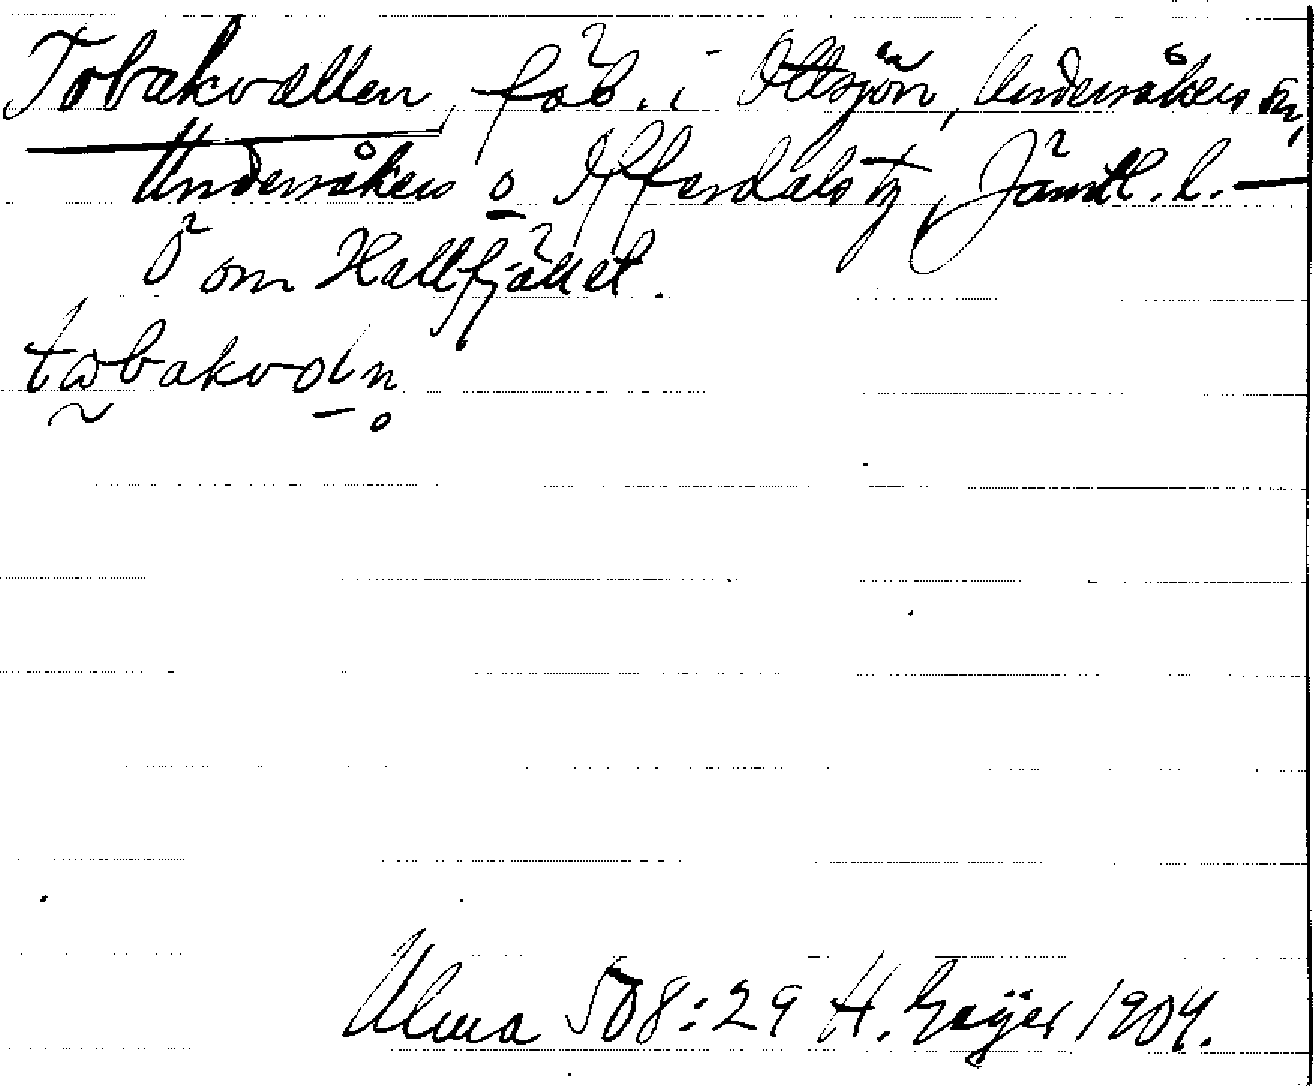 Tobakvallen, fäb. i Ottsjön, Undersåkers sn,
Undersåkers o Offerdals tg, Jämtl. l. —
Ö om Hallfjället.
tobakvoln
Ulma 508:29 H. Geijer 1904.